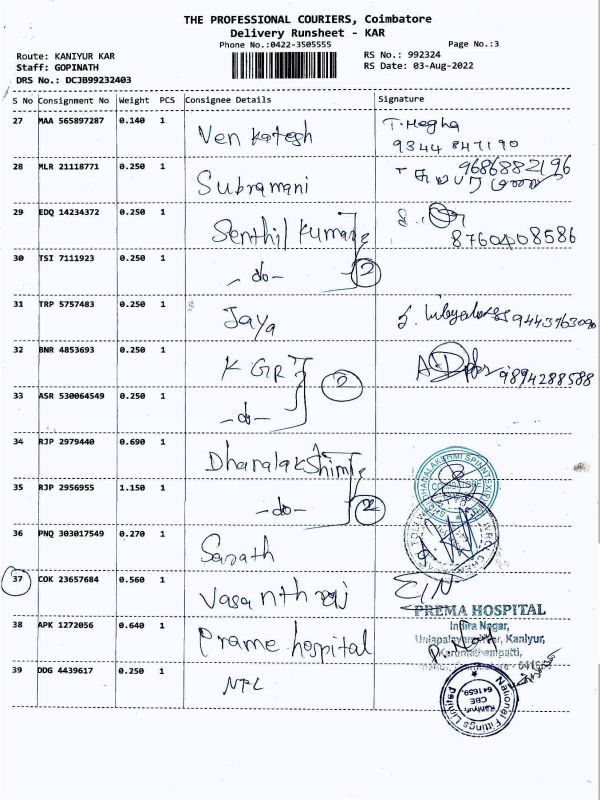 THE PROFESSIONAL COURIERS, Coimbatore
Delivery Runsheet - KAR
Phone No.:0422-3505555
Page No.:3
Route: KANIYUR KAR
RS No.: 992324
Staff: GOPINATH
RS Date: 03-Aug-2022
DRS No.: DCJB99232403
S No Consignment No Weight PCS Consignee Details Signature
27 MAA 565897287 0.140 1 Venkatesh T. Megha
9344 847190
28 MLR 21118771 0.250 1 Subramani 9686882196
29 EDQ 14234372 0.250 1 Senthil Kumar
8760408586
30 TSI 7111923 0.250 1 - do - 2
31 TRP 5757483 0.250 1 Jaya 9443763090
32 BNR 4853693 0.250 1 K G R T 2 9894288588
33 ASR 530064549 0.250 1 - do -
34 RJP 2979440 0.690 1
35 RJP 2956955 1.150 1 - do - 2
36 PNQ 303017549 0.270 1 Sarath
37 COK 23657684 0.560 1
38 APK 1272056 0.640 1 Prame hospital
PREMA HOSPITAL
Indira Nagar,
Kaniyur,
Karumathampatti,
39 DDG 4439617 0.250 1 NFL
National Fittings Limited
Kaniyur,
CBE
641659.